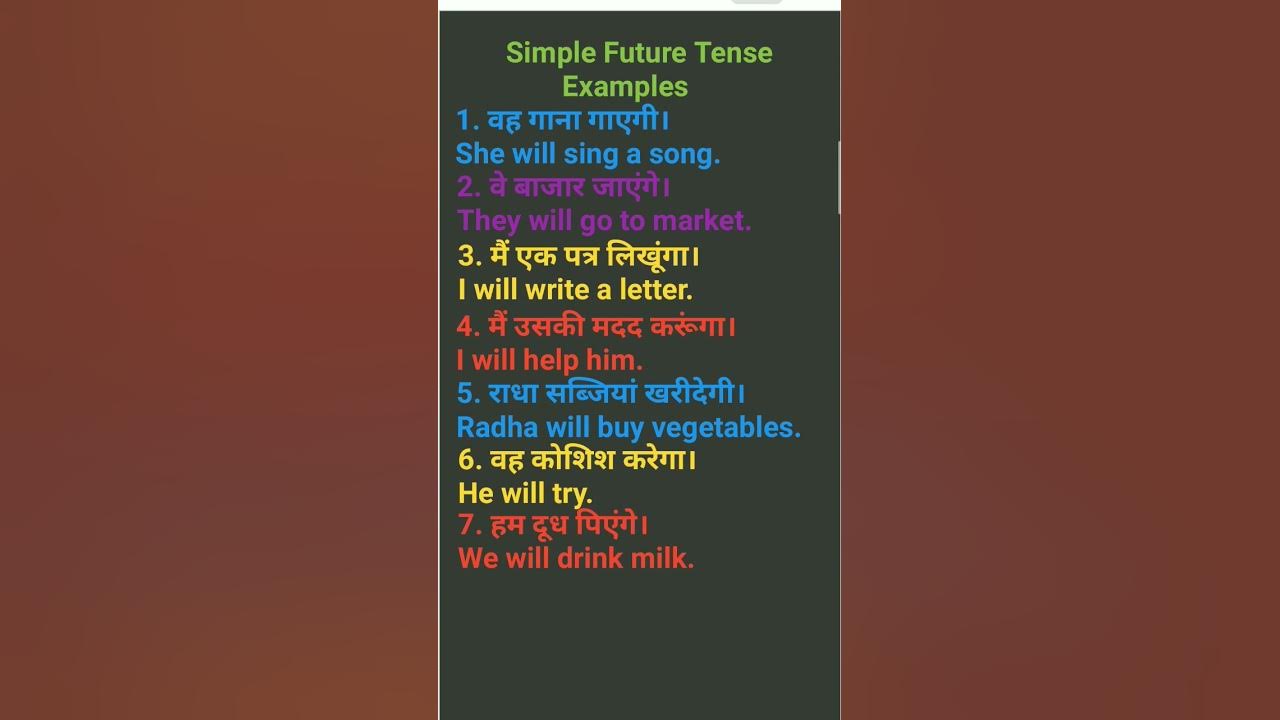 Simple Future Tense
Examples
1. वह गाना गाएगी।
She will sing a song.
2. वे बाजार जाएंगे।
They will go to market.
3. मैं एक पत्र लिखूंगा।
I will write a letter.
4. मैं उसकी मदद करूंगा।
I will help him.
5. राधा सब्जियां खरीदेगी।
Radha will buy vegetables.
6. वह कोशिश करेगा।
He will try.
7. हम दूध पिएंगे।
We will drink milk.